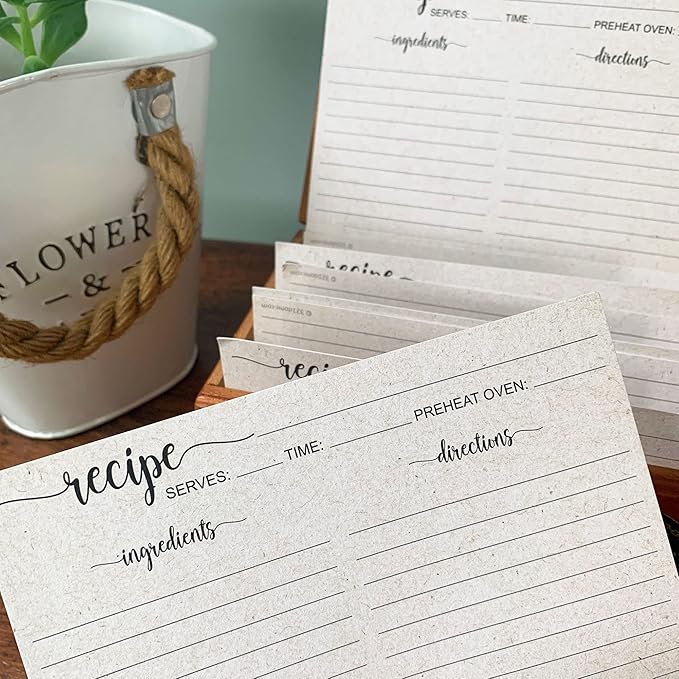 SERVES: TIME: PREHEAT OVEN:
ingredients directions
FLOWER
&
recipe
recipe
recipe SERVES: TIME: PREHEAT OVEN:
ingredients directions